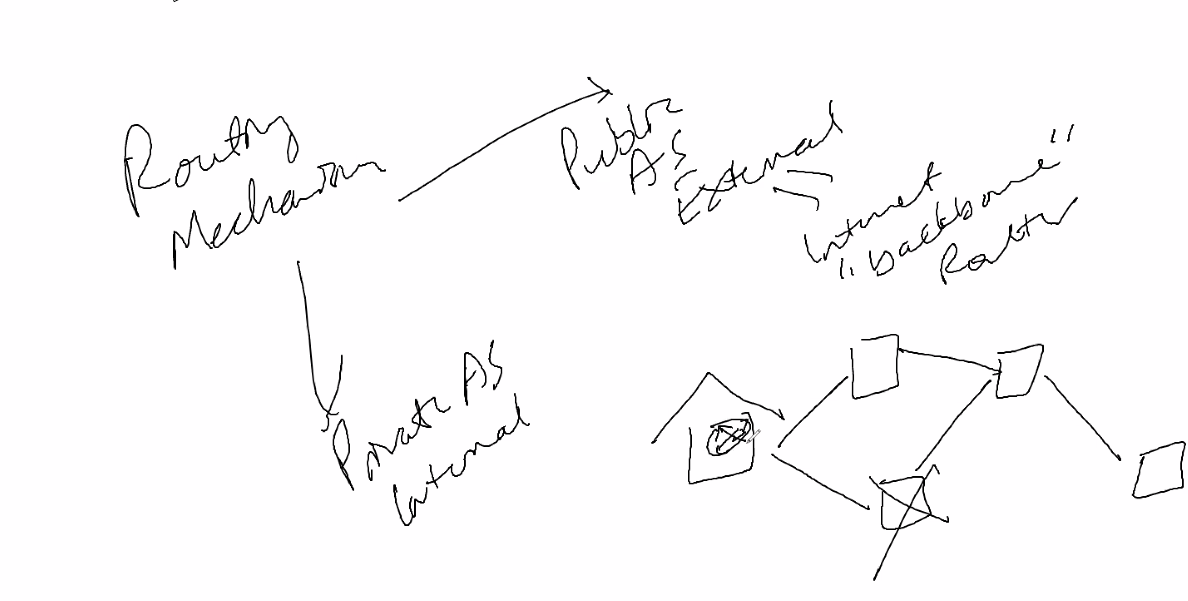 Routing
Mechanism
Public
AS
External
Internet
"backbone"
Router
Private AS
Internal